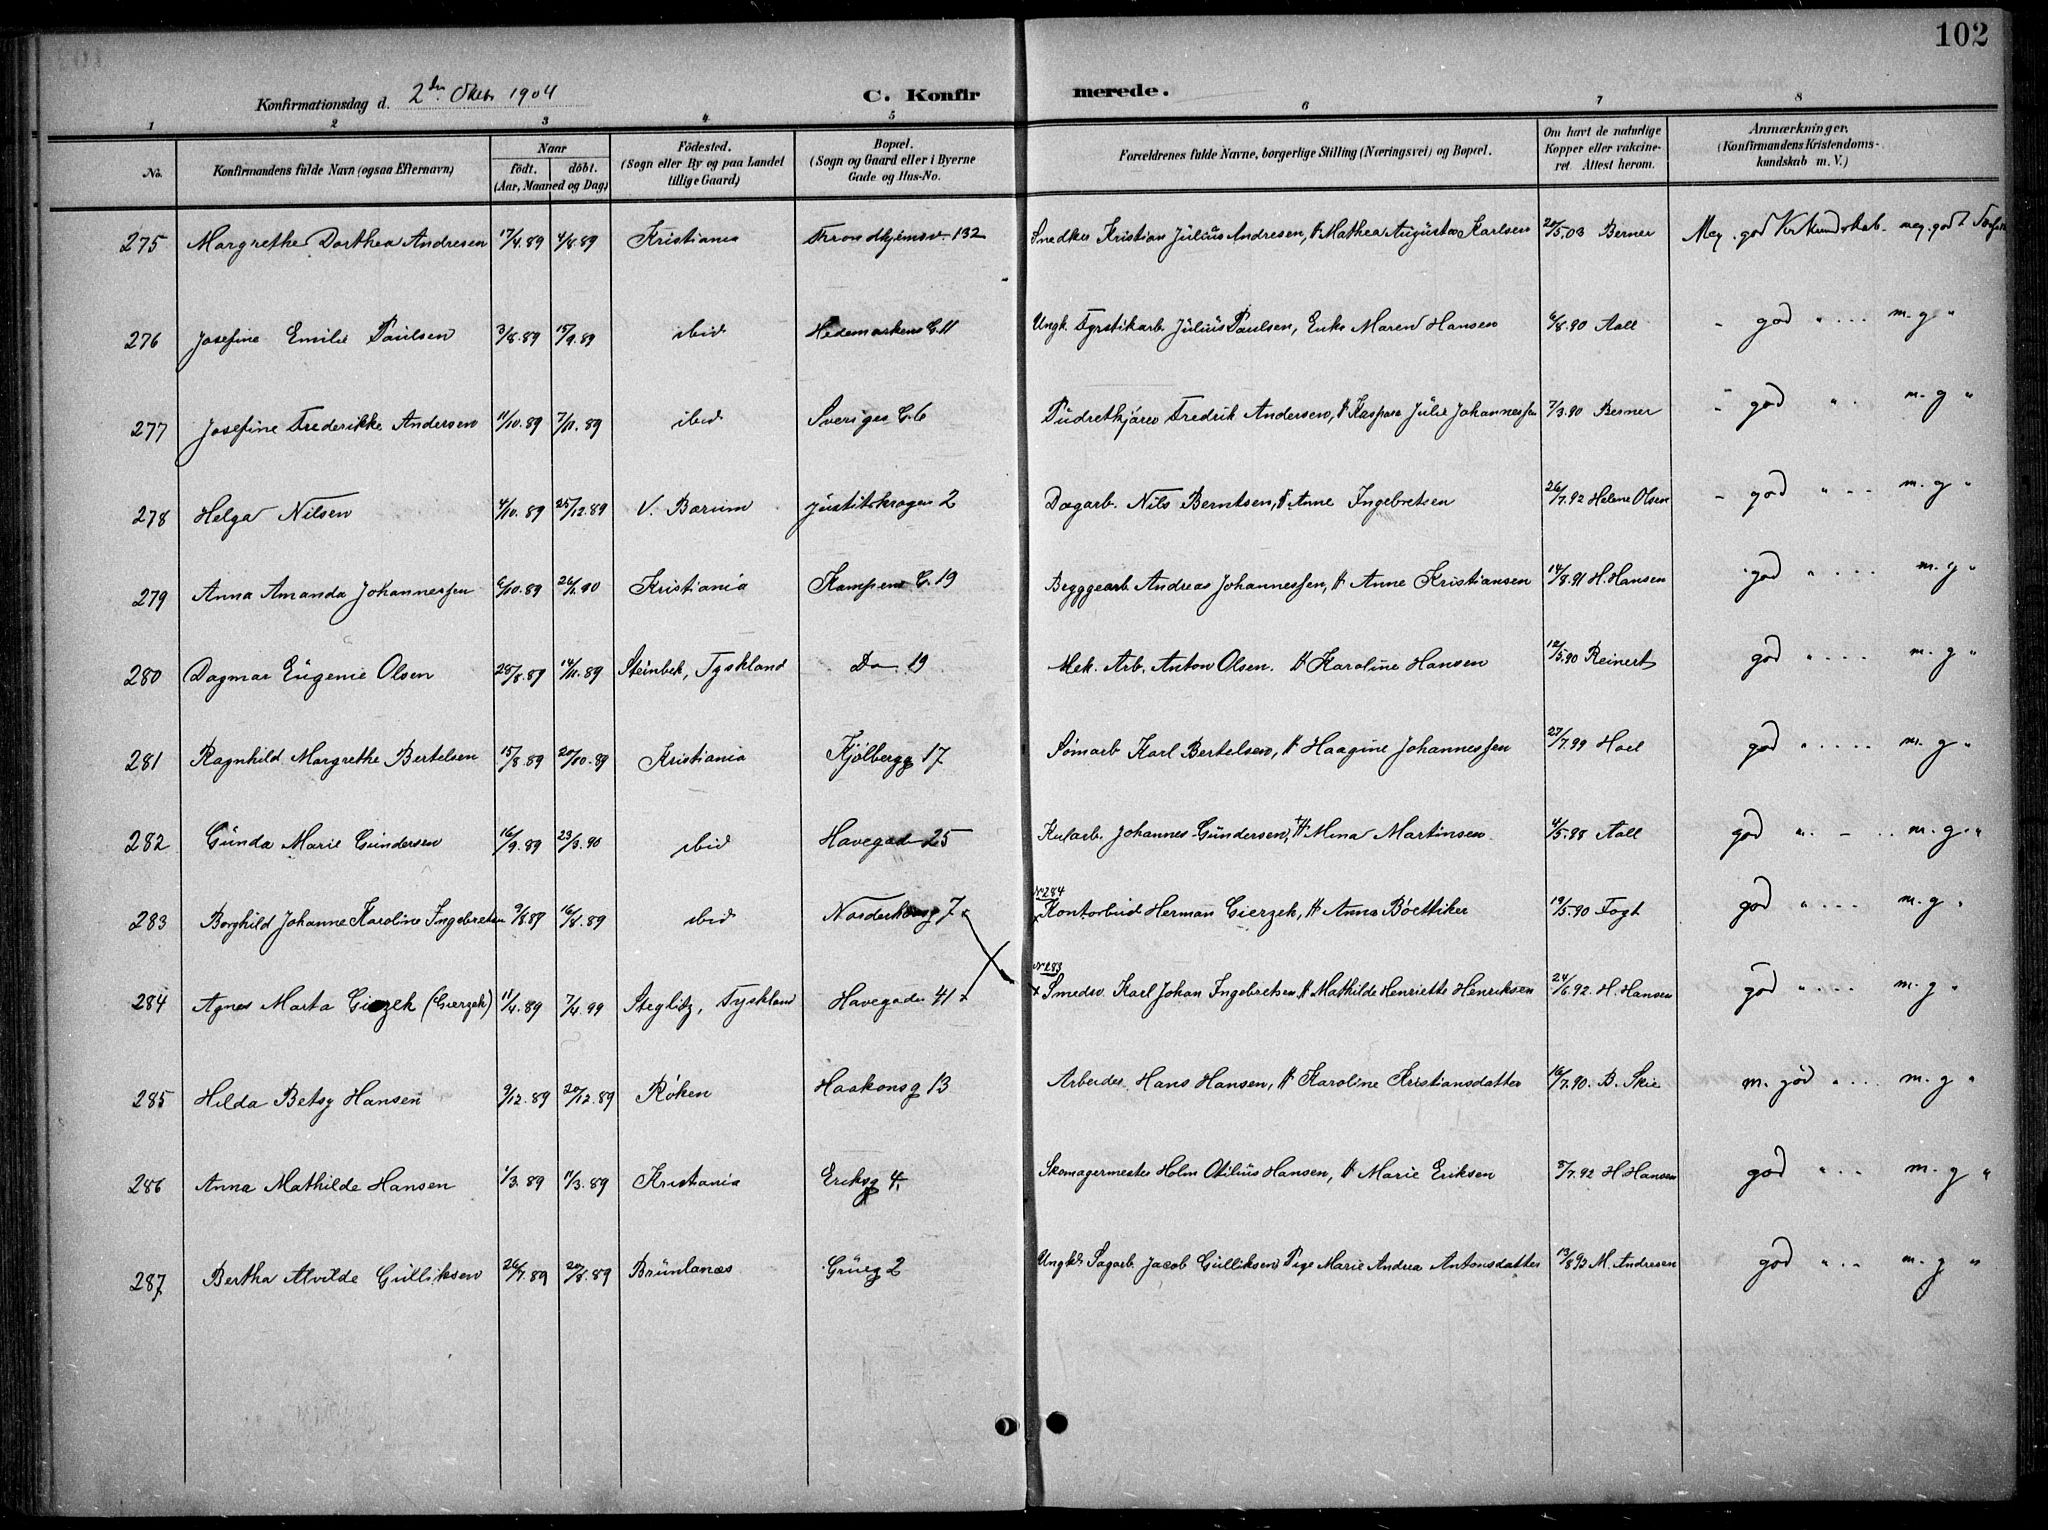 102
Konfirmationsdag d. 2den Oktbr 1904 C. Konfirmerede.
1 2 3 4 5 6 7 8
No. Konfirmandens fulde Navn (ogsaa Efternavn) Naar født. døbt. (Aar, Maaned og Dag) Fødested. (Sogn eller By og paa Landet tillige Gaard) Bopæl. (Sogn og Gaard eller i Byerne Gade og Hus-No. Forældrenes fulde Navne, borgerlige Stilling (Næringsvei) og Bopæl. Om havt de naturlige Kopper eller vakcineret. Attest herom. Anmærkninger. (Konfirmandens Kristendomskundskab m. V.)
275 Margrethe Dorthea Andresen 17/4.89 4/8.89 Kristiania Trondhjemsv. 132 Snedker Kristian Julius Andresen, H Mathea Augusta Karlsen 20/5.03 Berner Meg. god Kr Kundskab. meg. godt
276 Josefine Emilie Paulsen 3/8.89 15/9.89 ibid Hedemarkens G. 11 Ungk. Fyrstikarb. Julius Paulsen, Enke Maren Hansen 6/8.90 Aall " god " .... m.g "
277 Josefine Frederikke Andersen 11/10.89 7/11.89 ibid Sveriges G. 6 Pudretkjører Fredrik Andersen, H Kaspara Julie Johannessen 7/3.90 Berner " god " .. m.g "
278 Helga Nilsen 4/10.89 25/12.89 V. Bærum Justitskrogen 2 Dagarb. Nils Berntsen, H Anne Ingebretsen 26/7.92 Helene Olsen " god " ... m.g "
279 Anna Amanda Johannessen 6/10.89 26/1.90 Kristiania Kampens G. 19 Byggearb. Andreas Johannessen, H Anne Kristiansen 14/8.91 H. Hansen god " .... m.g "
280 Dagmar Eugenie Olsen 28/8.89 14/11.89 Steinbek, Tyskland Do 19 Mek. Arb. Anton Olsen. H Karoline Hansen 12/5.90 Reinert god " .... m.g "
281 Ragnhild Margrethe Bertelsen 15/8.89 20/10.89 Kristiania Kjølbergg 17 Sømarb Karl Bertelsen, H Haagine Johannessen 27/7.99 Hoel god " .... m.g "
282 Gunda Marie Gundersen 16/9.89 23/3.90 ibid Havegaden 25 Kularb. Johannes Gundersen, H Mina Martinsen 4/5.98 Aall god " .. m.g "
283 Borghild Johanne Karoline Ingebretsen 9/8.89 16/8.89 ibid Norderhovsg 7 × No 284 × Kontorbud Herman Gierzek, H Anna Bøettiker 19/5.90 Fogt god " .... m.g "
284 Agnes Marta Gierzek (Gierzek) 11/4.89 7/4.99 Steglitz, Tyskland Havegaden 41 × No 283 × Smedsv. Karl Johan Ingebretsen H Mathilde Henriette Henriksen 24/6.92 H. Hansen god " .... m.g "
285 Hilda Betsy Hansen 9/12.89 20/12.89 Røken Haakonsg 13 Arbeider Hans Hansen, H Karoline Kristiansdatter 16/7.90. B. Skie m. god " .... m.g "
286 Anna Mathilde Hansen 1/3.89 11/3.89 Kristiania Eriksg 4 Skomagermester Holm Otilius Hansen, H Marie Eriksen 8/7.92 H Hansen god " ... m.g "
287 Bertha Alvilde Gulliksen 26/7.89 20/8.89 Brunlanæs Grueg 2 Ungk. Sagarb. Jacob Gulliksen, Pige Marie Andrea Antonsdatter 13/8.93 M. Andresen god " .. m.g "